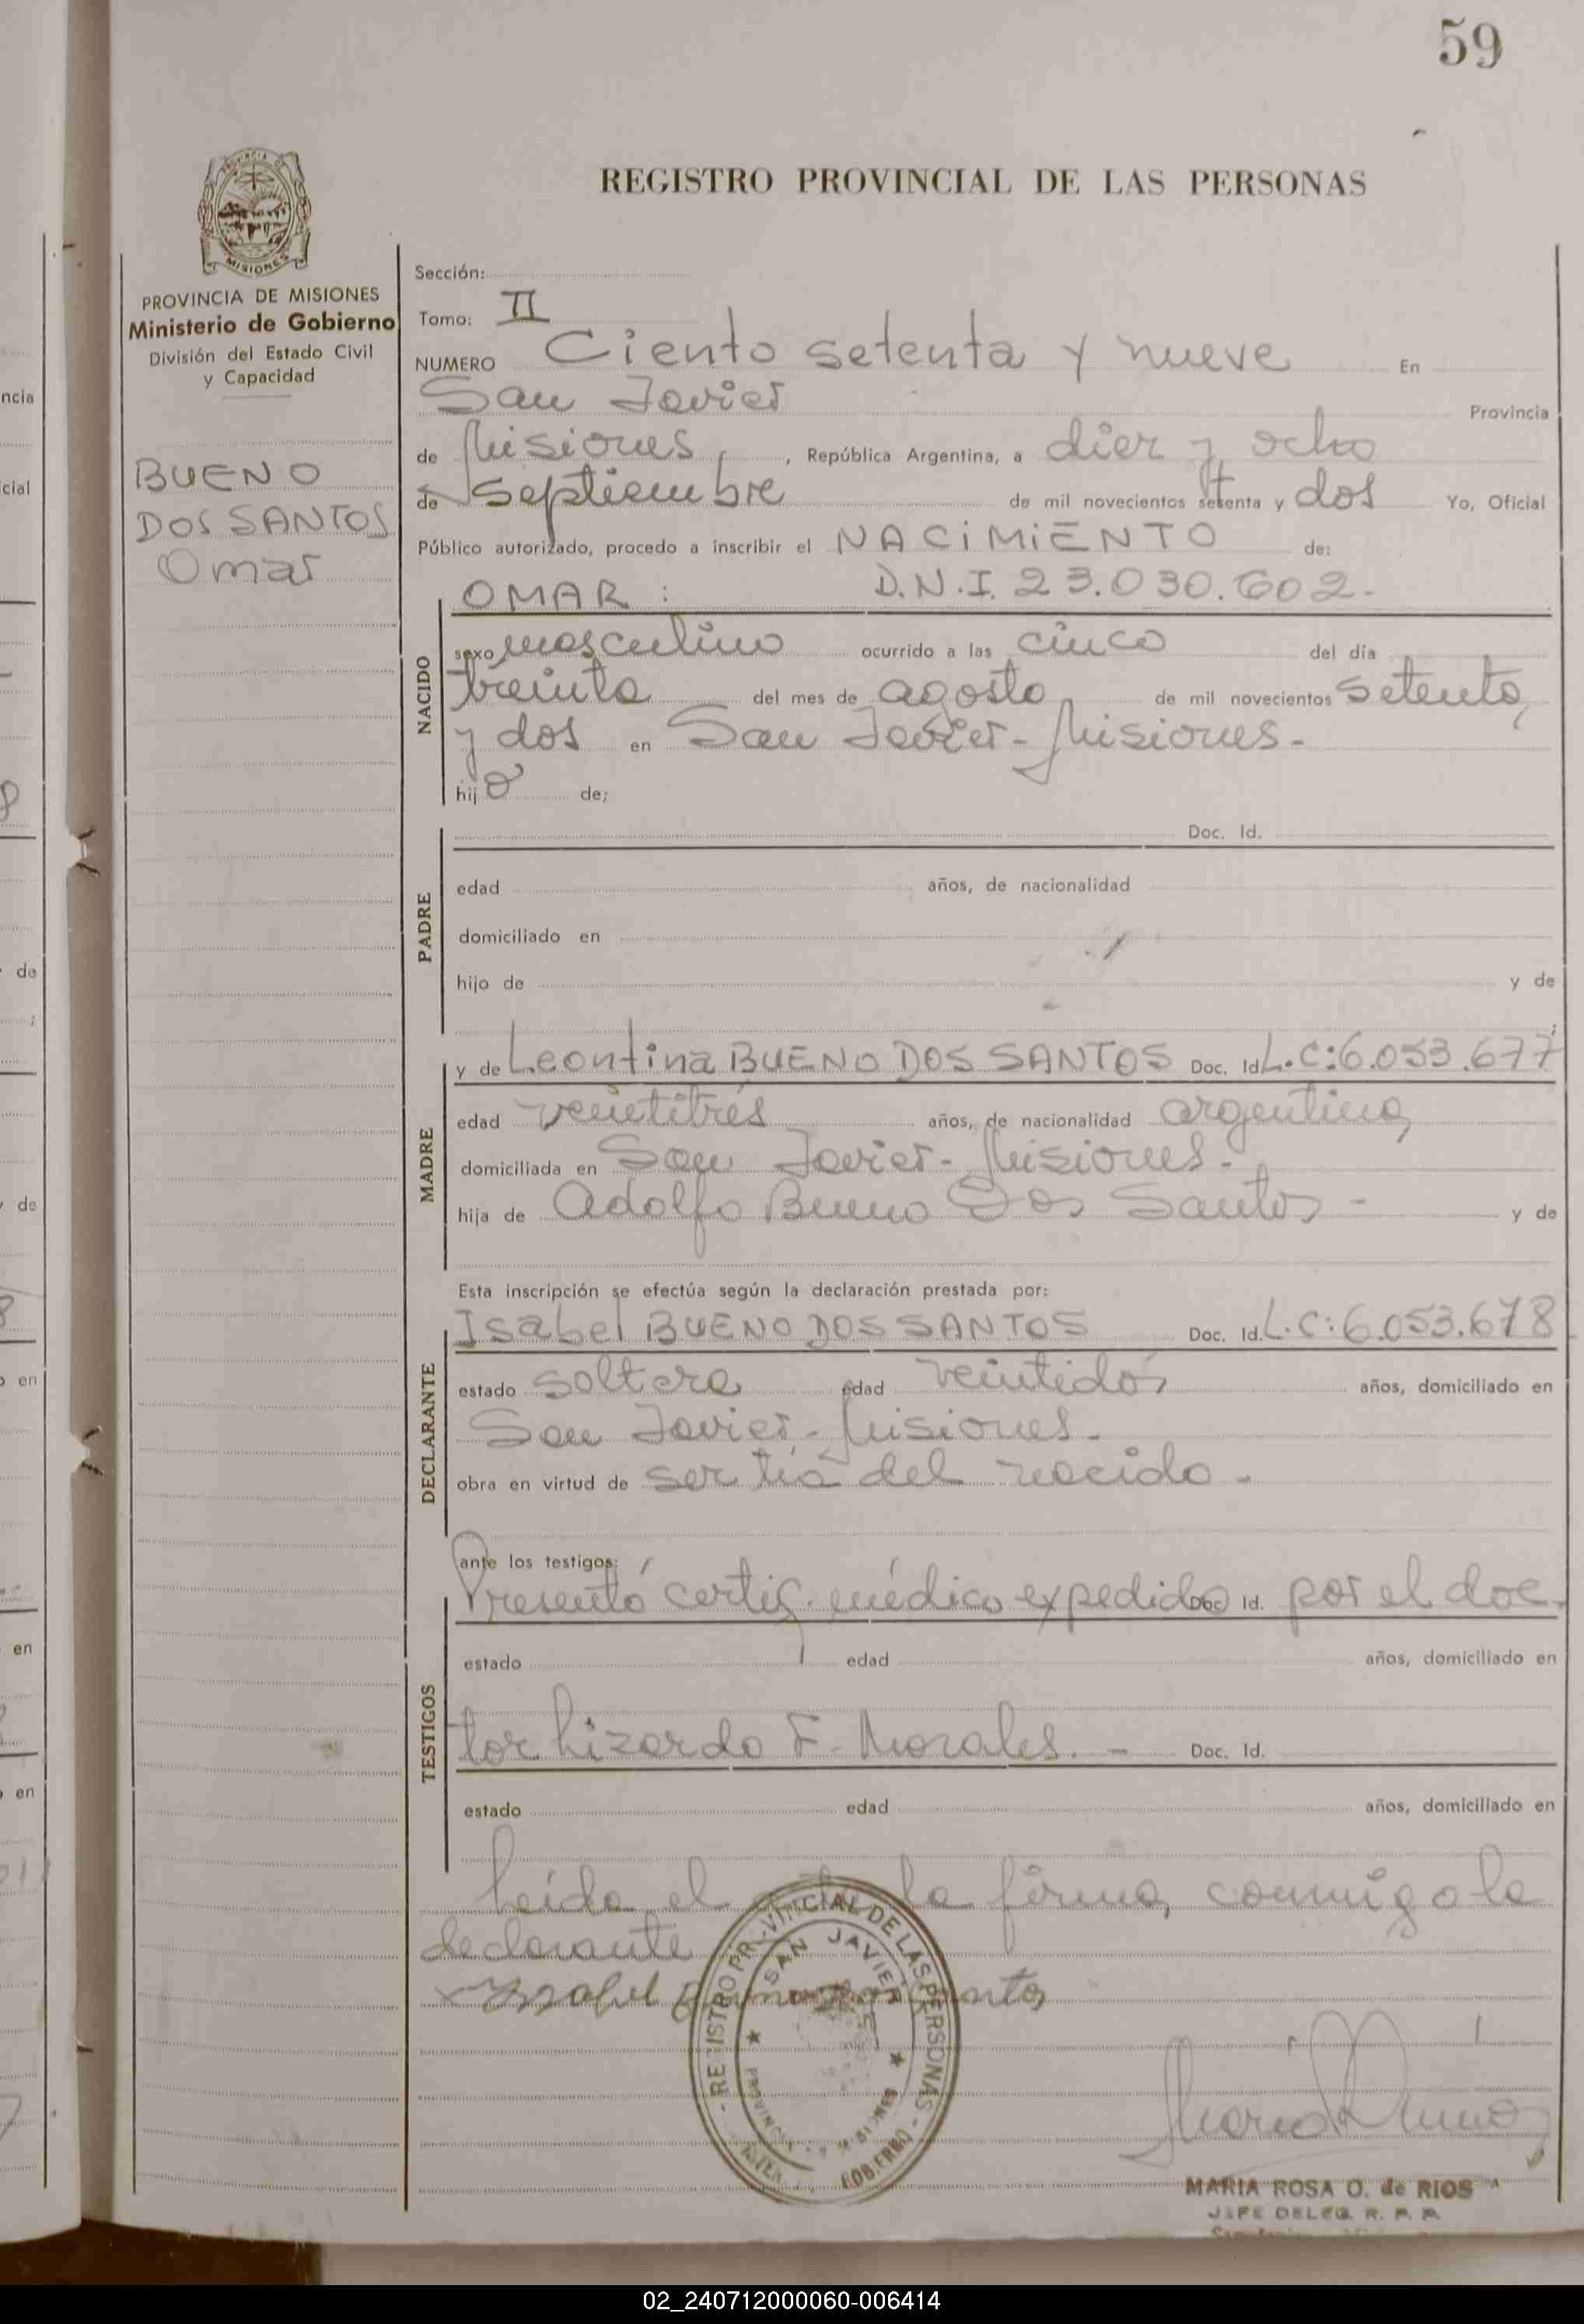 59
REGISTRO PROVINCIAL DE LAS PERSONAS
MISIONES
PROVINCIA DE MISIONES
Ministerio de Gobierno
División del Estado Civil
y Capacidad
BUENO
DOS SANTOS
Omar
Sección:
Tomo: II
NUMERO Ciento setenta y nueve En
San Javier Provincia
de Misiones, República Argentina, a diez y ocho
de septiembre de mil novecientos setenta y dos Yo, Oficial
Público autorizado, procedo a inscribir el NACIMIENTO de:
OMAR: D.N.I. 23.030.602.-
NACIDO
sexo masculino ocurrido a las cinco del día
treinta del mes de agosto de mil novecientos setenta
y dos en San Javier - Misiones.-
hijo de;
PADRE
Doc. Id.
edad años, de nacionalidad
domiciliado en
hijo de y de
MADRE
y de Leontina BUENO DOS SANTOS Doc. Id L.C:6.053.677
edad veintitrés años, de nacionalidad argentina
domiciliada en San Javier - Misiones.-
hija de Adolfo Bueno Dos Santos - y de
Esta inscripción se efectúa según la declaración prestada por:
DECLARANTE
Isabel BUENO DOS SANTOS Doc. Id. L.C:6.053.678
estado soltera edad veintidos años, domiciliado en
San Javier - Misiones.-
obra en virtud de ser tía del nacido -
ante los testigos:
TESTIGOS
Presentó certif. médico expedido Doc. Id. por el doc
estado edad años, domiciliado en
tor Lizardo F. Morales. - Doc. Id.
estado edad años, domiciliado en
Leída el la firma conmigo la
declarante
REGISTRO PROVINCIAL DE LAS PERSONAS
SAN JAVIER
PROVINCIA MISIONES
GOBIERNO
MARIA ROSA O. de RIOS
JEFE DELEG. R. P. P.
ncia
cial
de
de
en
en
en
02_240712000060-006414